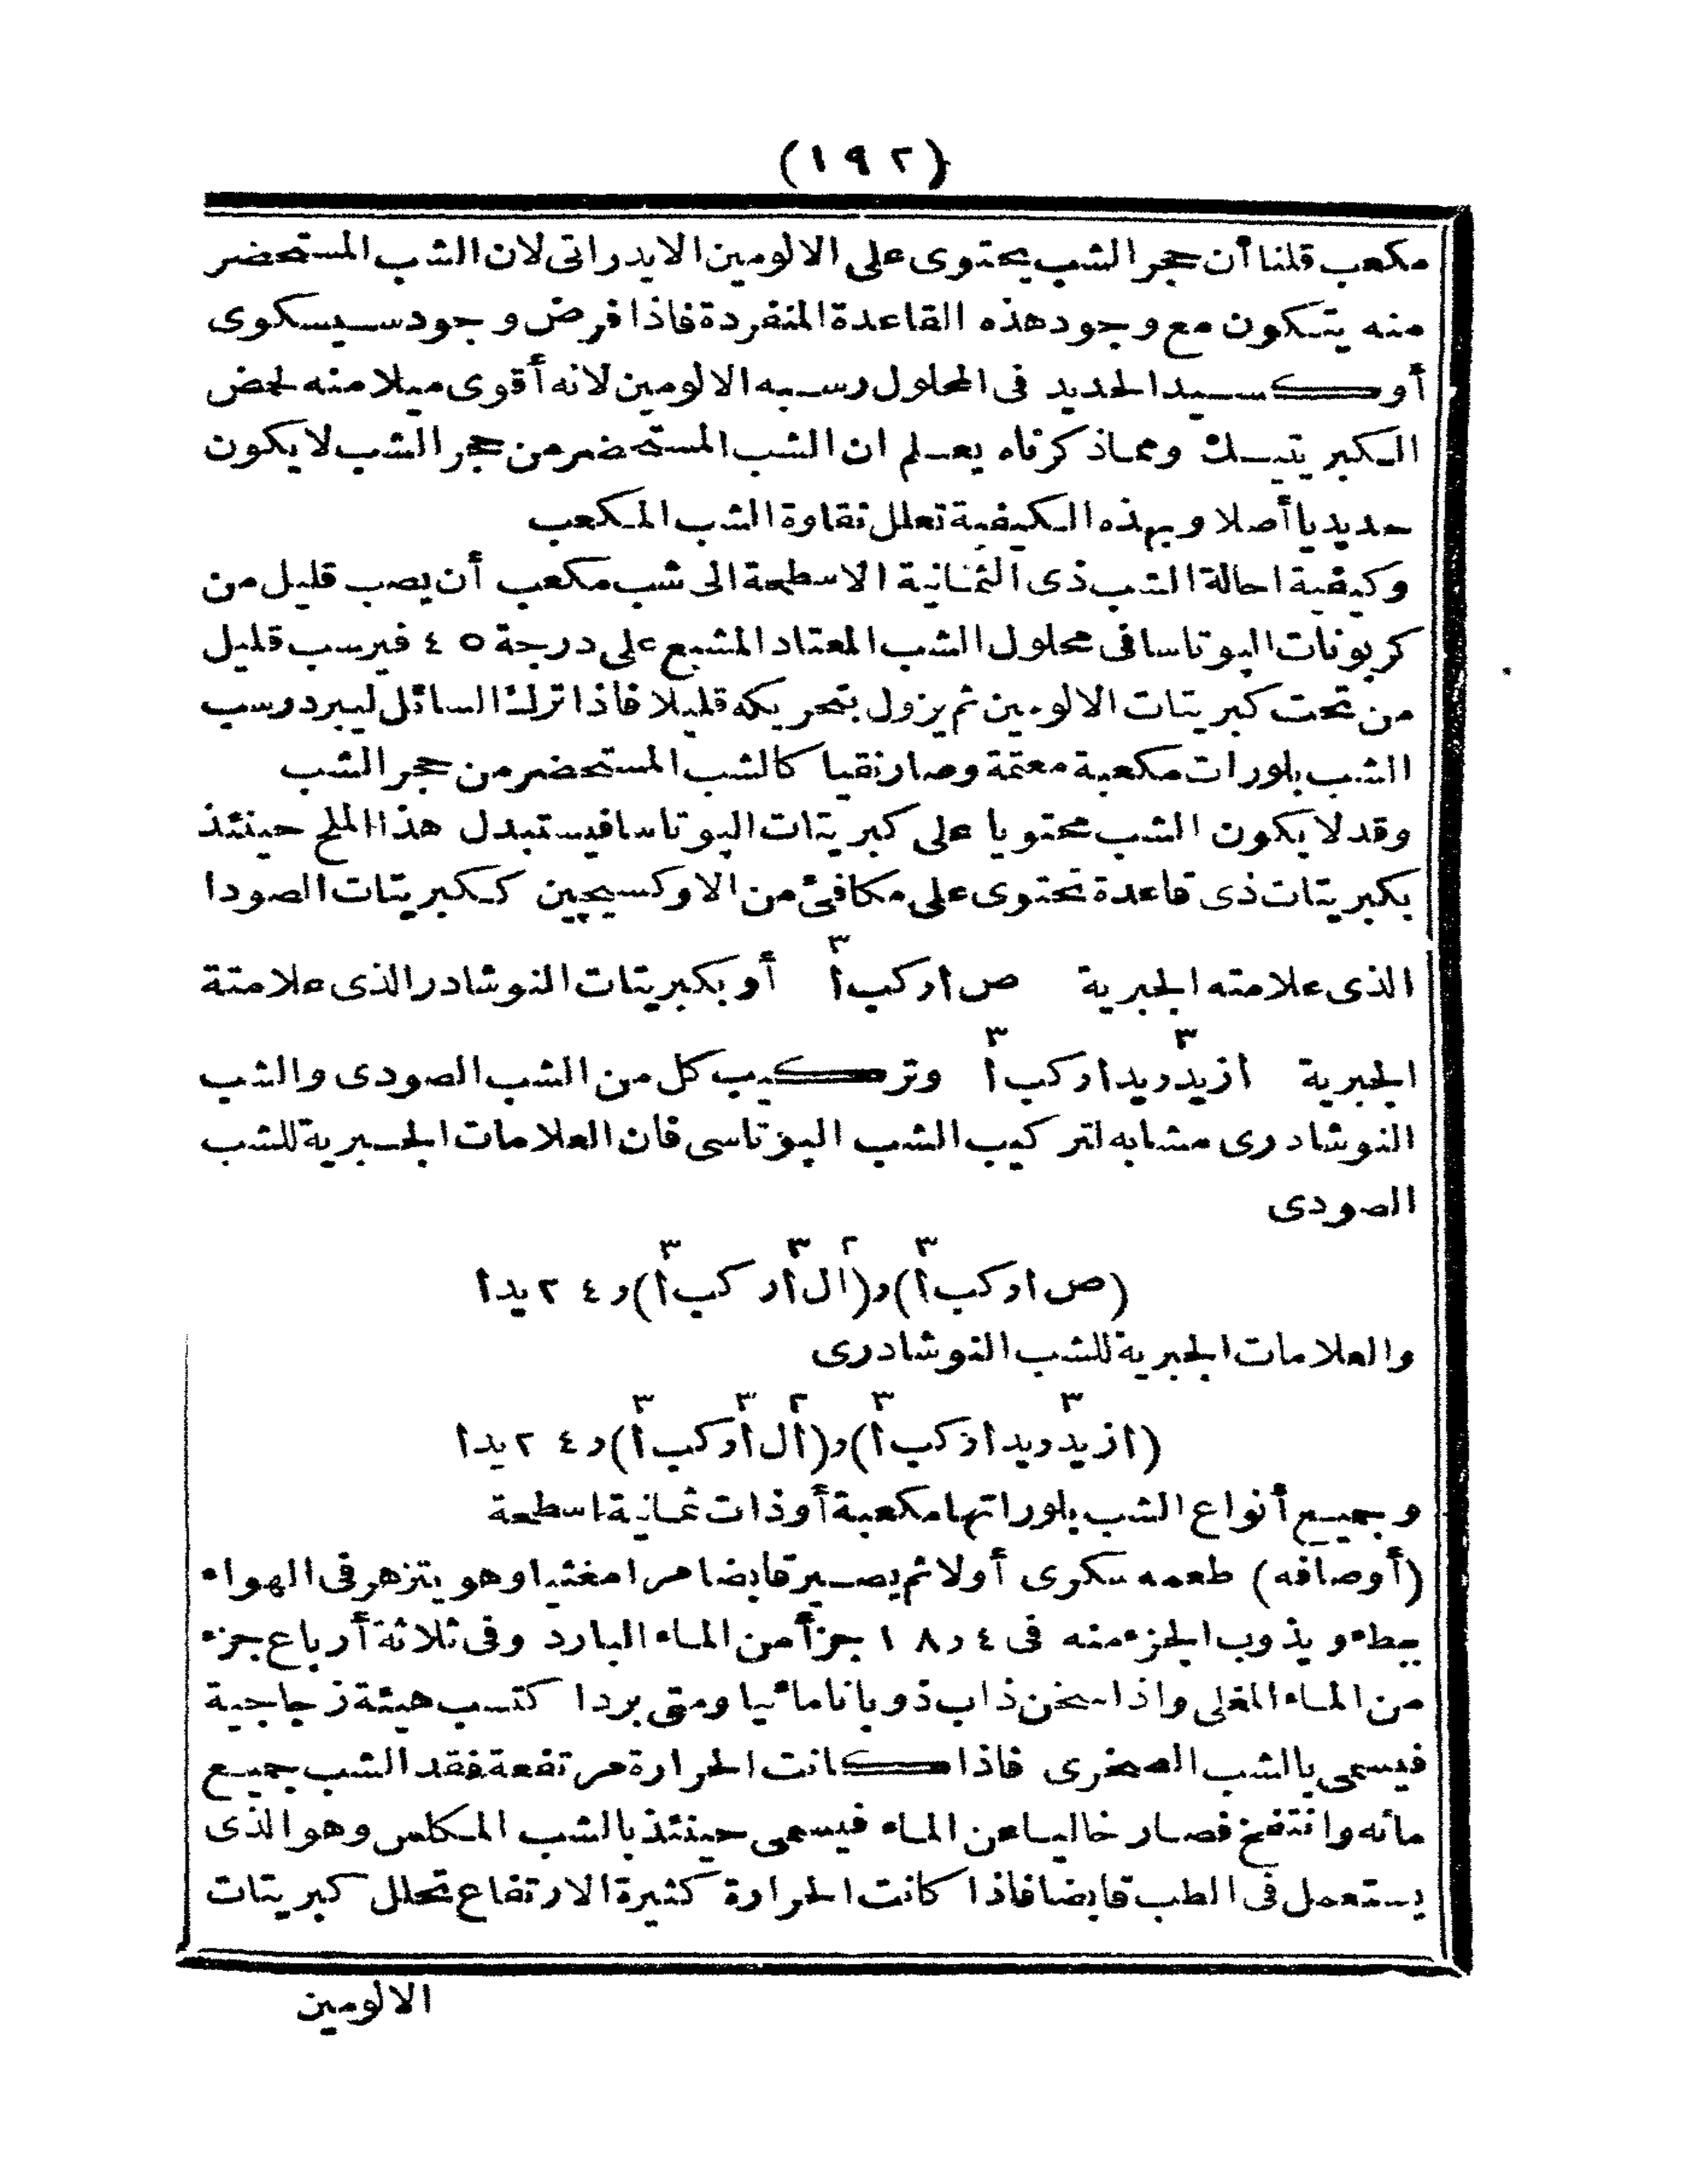 (١٩٢)
مكعب قلنا أن حجر الشب يحتوى على الالومين الايدراتى لان الشب المستحضر
منه يتكون مع وجود هذه القاعدة المنفردة فاذا فرض وجود سيسكوى
أوكسيد الحديد فى المحلول رسبه الالومين لانه أقوى ميلا منه لحمض
الكبريتيك ومما ذكرناه يعلم ان الشب المستحضر من حجر الشب لا يكون
حديديا أصلا وبهذه الكيفية تعلل نقاوة الشب المكعب
وكيفية احالة الشب ذى الثمانية الاسطحة الى شب مكعب أن يصب قليل من
كربونات البوتاسا فى محلول الشب المعتاد المشبع على درجة ٤٥ فيرسب قليل
من تحت كبريتات الالومين ثم يزول بتحريكه قليلا فاذا ترك السائل ليبرد رسب
الشب بلورات مكعبية معتمة وصار نقيا كالشب المستحضر من حجر الشب
وقد لا يكون الشب محتويا على كبريتات البوتاسا فيستبدل هذا الملح حينئذ
بكبريتات ذى قاعدة تحتوى على مكافئ من الاوكسيجين ككبريتات الصودا
الذى علامته الجبرية ص ا ر كب ا٣ أو بكبريتات النوشادر الذى علامتة
الجبرية ا زيد٣ ر يد ا ر كب ا٣ وتركيب كل من الشب الصودى والشب
النوشادرى مشابه لتركيب الشب البوتاسى فان العلامات الجبرية للشب
الصودى
(ص ا ر كب ا٣) ر (ا٢ل ا٣ ر كب ا٣) ر ٢٤ يد ا
والعلامات الجبرية للشب النوشادرى
(ا زيد٣ ر يد ا ر كب ا٣) ر (ا٢ل ا٣ ر كب ا٣) ر ٢٤ يد ا
وجميع أنواع الشب بلوراتها مكعبة أو ذات ثمانية اسطحة
(أوصافه) طعمه سكرى أولا ثم يصير قابضا مرا مغثيا وهو يتزهر فى الهواء
ببطء ويذوب الجزء منه فى ٤ر١٨ جزأ من الماء البارد وفى ثلاثة أرباع جزء
من الماء المغلى واذا سخن ذاب ذوبانا مائيا ومتى برد اكتسب هيئة زجاجية
فيسمى بالشب الصخرى فاذا كانت الحرارة مرتفعة فقد الشب جميع
مائه وانتفخ فصار خاليا عن الماء فيسمى حينئذ بالشب المكلس وهو الذى
يستعمل فى الطب قابضا فاذا كانت الحرارة كثيرة الارتفاع تحلل كبريتات
الالومين